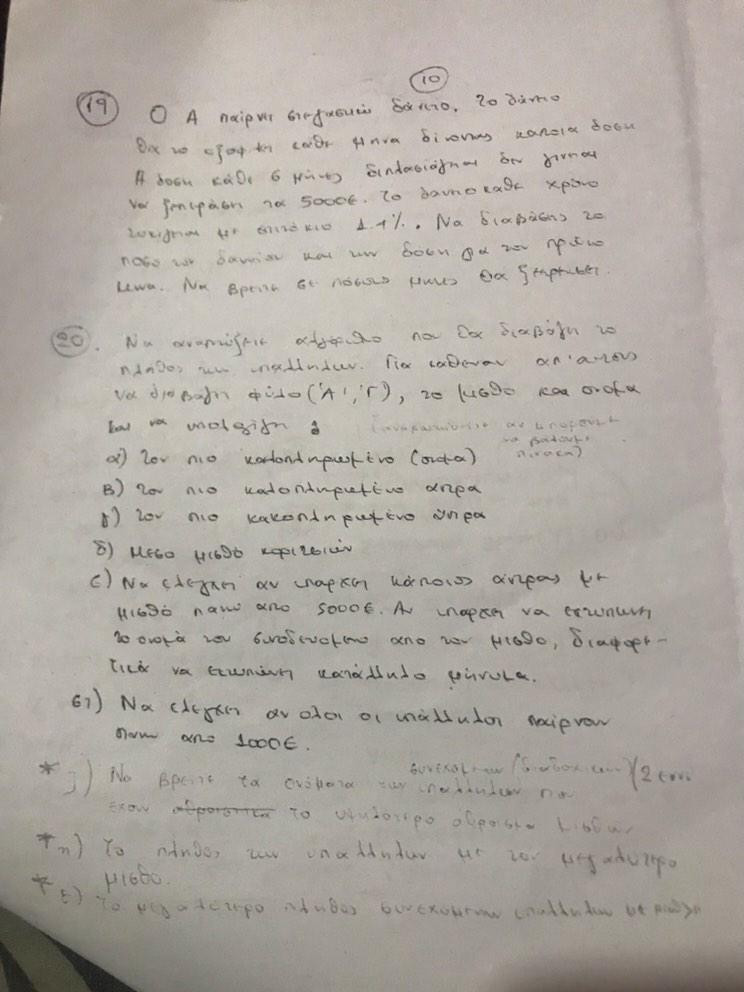 10
19 Ο Α παίρνει στεγαστικό δάνειο. Το δάνειο
θα το εξοφλεί κάθε μήνα δίνοντας κάποια δόση
Η δόση κάθε 6 μήνες διπλασιάζεται δεν γίνεται
να ξεπεράσει τα 5000€. Το δάνειο κάθε χρόνο
τοκίζεται με επιτόκιο %. Να διαβάσεις το
ποσό του δανείου και την δόση για τον πρώτο
μήνα. Να βρεις σε πόσους μήνες θα ξεχρεώσει.
20. Να αναπτύξεις αλγόριθμο που θα διαβάζει το
πλήθος των υπαλλήλων. Για καθέναν απ'αυτούς
να διαβάζει φύλο ('Α','Γ'), το μισθό και όνομα
και να υπολογίζει
αν μπορούμε
να βάλουμε
α) Τον πιο καλοπληρωμένο (όνομα) πίνακα)
β) Τον πιο καλοπληρωμένο άντρα
γ) Τον πιο κακοπληρωμένο άντρα
δ) Μέσο μισθό κοριτσιών
ε) Να ελέγχει αν υπάρχει κάποιος άντρας με
μισθό πάνω από 5000€. Αν υπάρχει να εκτυπώνει
το όνομά του συνοδευόμενο από τον μισθό, διαφορε-
τικά να εκτυπώνει κατάλληλο μήνυμα.
στ) Να ελέγχει αν όλοι οι υπάλληλοι παίρνουν
πάνω από 1000€.
συνεχόμενων/(διαδοχικών)
* ζ) Να βρείτε τα ονόματα των υπαλλήλων που
έχουν το υψηλότερο άθροισμα μισθών
* η) Το πλήθος των υπαλλήλων με τον μεγαλύτερο
μισθό.
* Το μεγαλύτερο πλήθος συνεχόμενων υπαλλήλων με